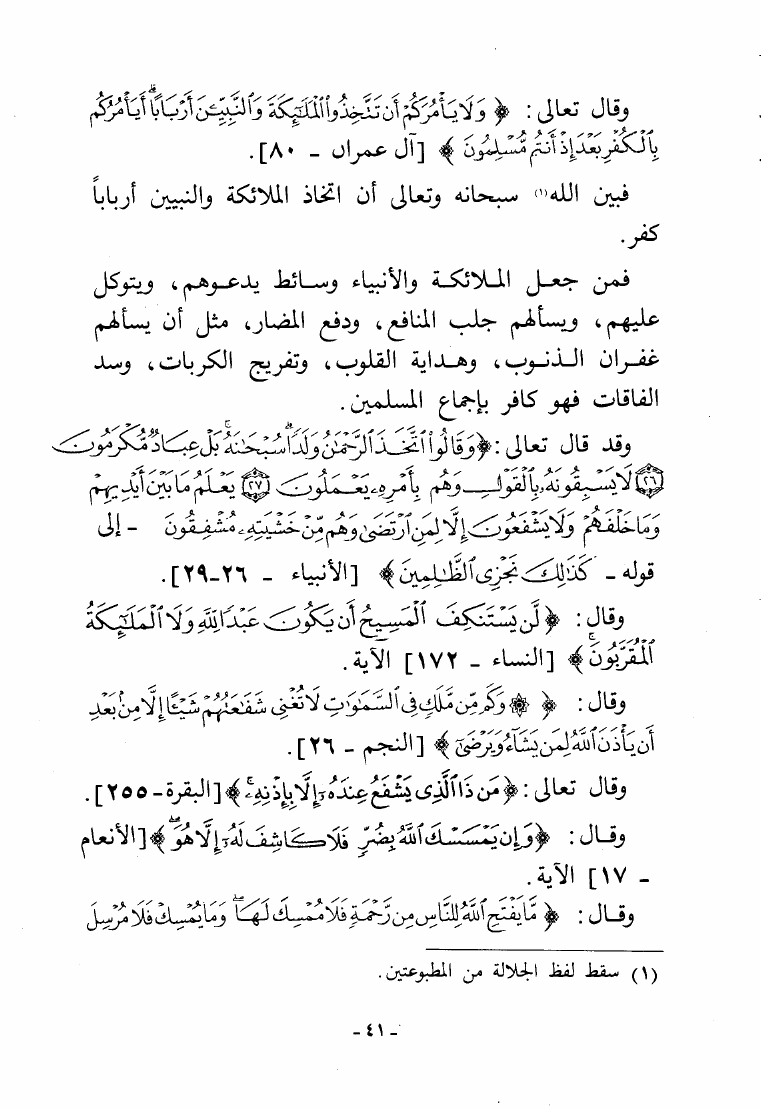 وقال تعالى : ﴿ وَلَا يَأْمُرَكُمْ أَن تَتَّخِذُوا۟ ٱلْمَلَٰٓئِكَةَ وَٱلنَّبِيِّـۧنَ أَرْبَابًا ۗ أَيَأْمُرُكُم
بِٱلْكُفْرِ بَعْدَ إِذْ أَنتُم مُّسْلِمُونَ ﴾ [آل عمران – ٨٠].
فبين الله(١) سبحانه وتعالى أن اتخاذ الملائكة والنبيين أرباباً
كفر.
فمن جعل الملائكة والأنبياء وسائط يدعوهم ، ويتوكل
عليهم ، ويسألهم جلب المنافع ، ودفع المضار ، مثل أن يسألهم
غفران الذنوب ، وهداية القلوب ، وتفريج الكربات ، وسد
الفاقات فهو كافر بإجماع المسلمين .
وقد قال تعالى : ﴿ وَقَالُوا۟ ٱتَّخَذَ ٱلرَّحْمَٰنُ وَلَدًا ۗ سُبْحَٰنَهُۥ ۚ بَلْ عِبَادٌ مُّكْرَمُونَ
﴿٢٦﴾ لَا يَسْبِقُونَهُۥ بِٱلْقَوْلِ وَهُم بِأَمْرِهِۦ يَعْمَلُونَ ﴿٢٧﴾ يَعْلَمُ مَا بَيْنَ أَيْدِيهِمْ
وَمَا خَلْفَهُمْ وَلَا يَشْفَعُونَ إِلَّا لِمَنِ ٱرْتَضَىٰ وَهُم مِّنْ خَشْيَتِهِۦ مُشْفِقُونَ – إلى
قوله – كَذَٰلِكَ نَجْزِى ٱلظَّٰلِمِينَ ﴾ [الأنبياء – ٢٦–٢٩].
وقال : ﴿ لَّن يَسْتَنكِفَ ٱلْمَسِيحُ أَن يَكُونَ عَبْدًا لِّلَّهِ وَلَا ٱلْمَلَٰٓئِكَةُ
ٱلْمُقَرَّبُونَ ۚ ﴾ [النساء – ١٧٢] الآية .
وقال : ﴿ ۞ وَكَم مِّن مَّلَكٍ فِى ٱلسَّمَٰوَٰتِ لَا تُغْنِى شَفَٰعَتُهُمْ شَيْـًٔا إِلَّا مِنۢ بَعْدِ
أَن يَأْذَنَ ٱللَّهُ لِمَن يَشَآءُ وَيَرْضَىٰٓ ﴾ [النجم – ٢٦].
وقال تعالى : ﴿ مَن ذَا ٱلَّذِى يَشْفَعُ عِندَهُۥٓ إِلَّا بِإِذْنِهِۦ ۚ ﴾ [البقرة – ٢٥٥].
وقال : ﴿ وَإِن يَمْسَسْكَ ٱللَّهُ بِضُرٍّ فَلَا كَاشِفَ لَهُۥٓ إِلَّا هُوَ ۖ ﴾ [الأنعام
– ١٧] الآية .
وقال : ﴿ مَّا يَفْتَحِ ٱللَّهُ لِلنَّاسِ مِن رَّحْمَةٍ فَلَا مُمْسِكَ لَهَا ۖ وَمَا يُمْسِكْ فَلَا مُرْسِلَ
(١) سقط لفظ الجلالة من المطبوعتين .
– ٤١ –